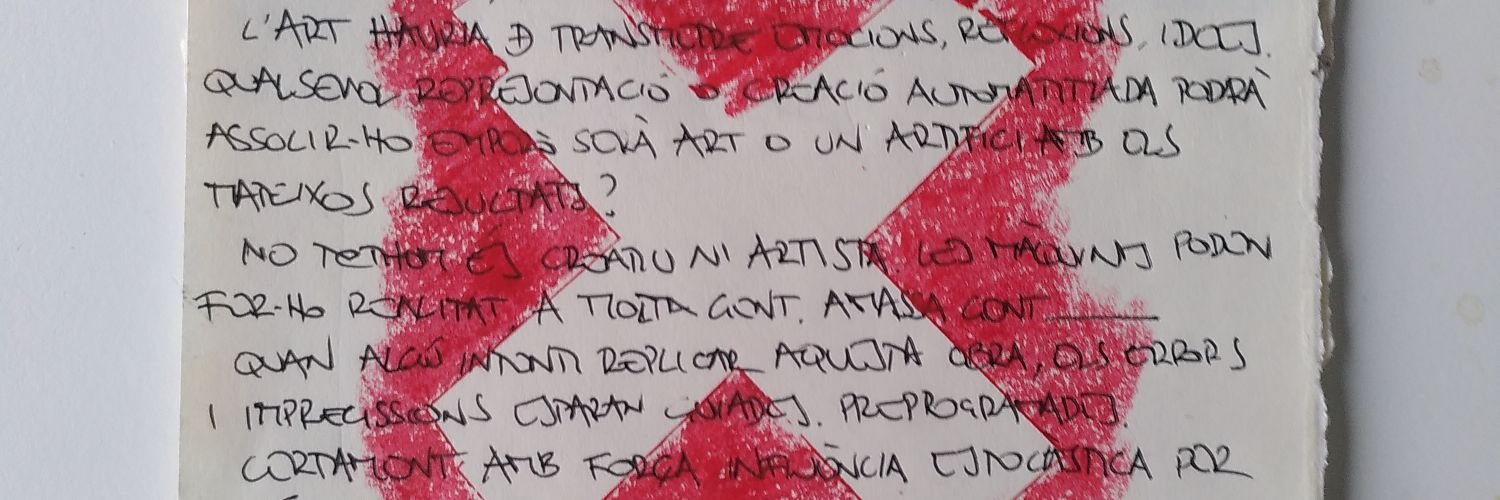 L'ART HAURIA Đ TRANSMETRE EMOCIONS, REFLEXIONS, IDEES.
QUALSEVOL REPRESENTACIÓ O CREACIÓ AUTOMATITZADA PODRÀ
ASSOLIR-HO EMPERÒ SERÀ ART O UN ARTIFICI AMB ELS
MATEIXOS RESULTATS?
NO TOTHOM ÉS CREATIU NI ARTISTA. LES MÀQUINES PODEN
FER-HO REALITAT A MOLTA GENT. AMASSA GENT ______
QUAN ALGÚ INTENTI REPLICAR AQUESTA OBRA, ELS ERRORS
I IMPRECISSIONS ESTARAN GUIADES. PREPROGRAMADES.
CERTAMENT AMB FORÇA INFLUÈNCIA ESTOCÀSTICA PER